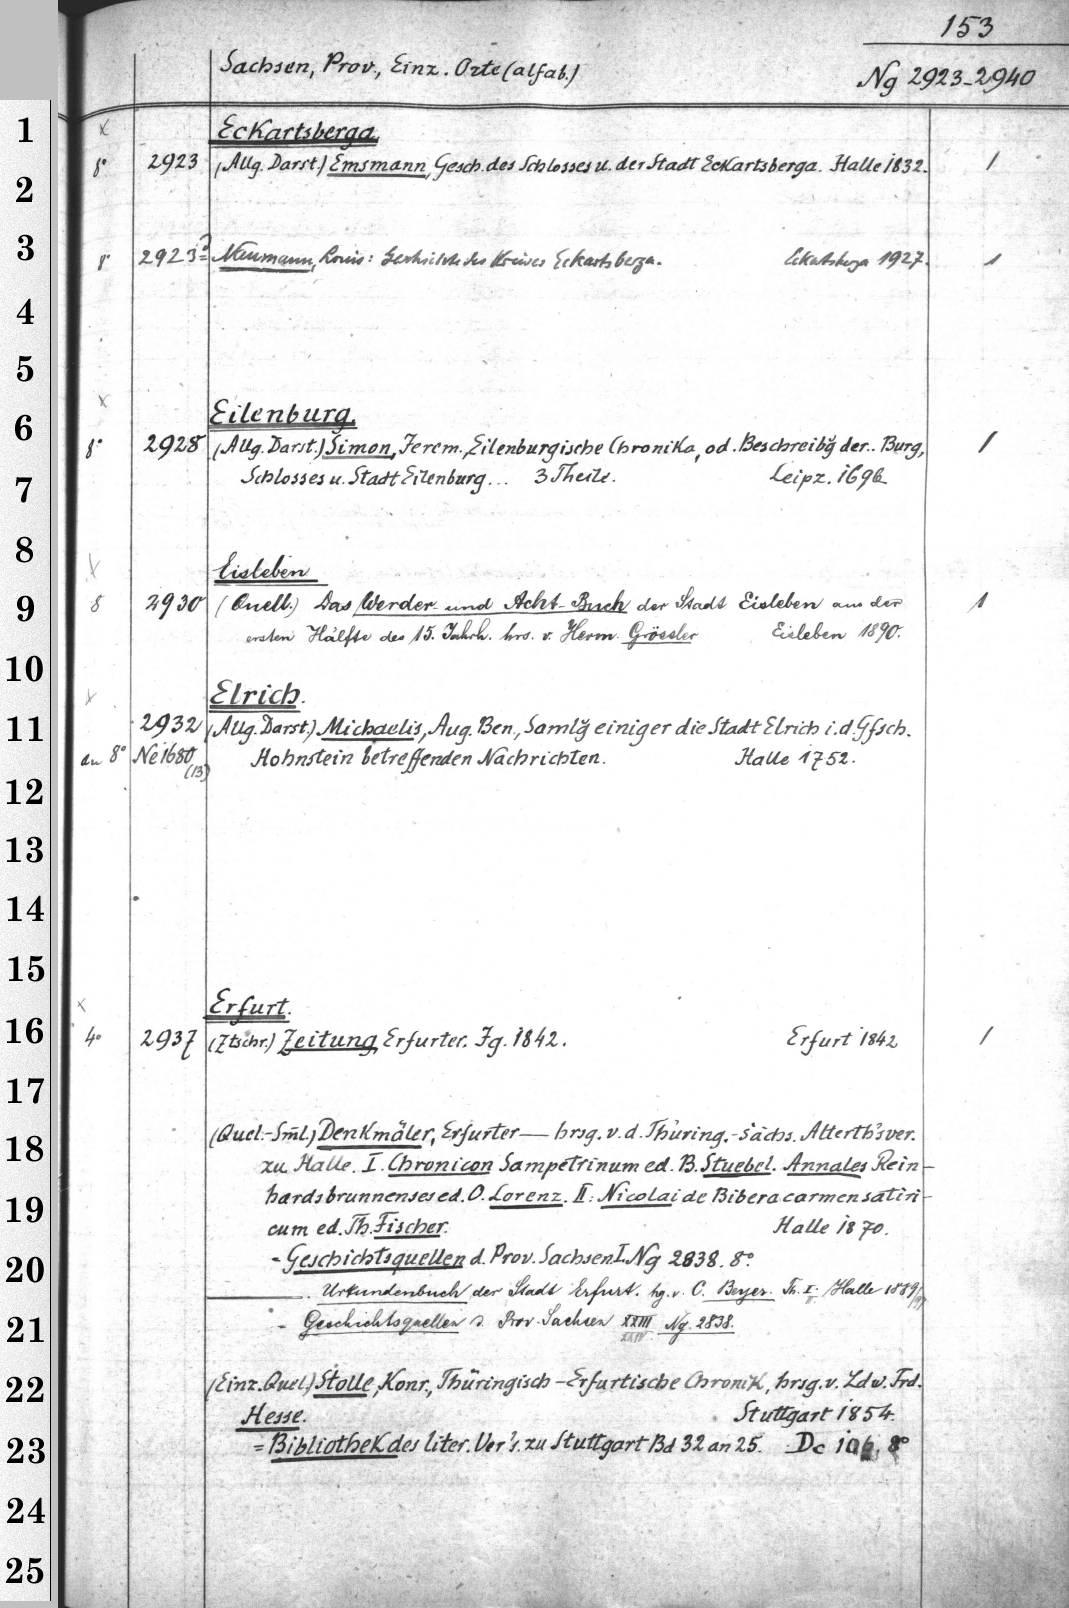 153
Sachsen, Prov., Einz. Orte (alfab.)
Ng 2923-2940
1 x Eckartsberga.
8° 2923 (Allg. Darst.) Emsmann, Gesch. des Schlosses u. der Stadt Eckartsberga. Halle 1832. 1
2
3
8° 2923a Naumann, Louis: Geschichte des Kreises Eckartsberga. Eckartsberga 1927. 1
4
5
x
6 Eilenburg.
8° 2928 (Allg. Darst.) Simon, Jerem., Eilenburgische Chronika, od. Beschreibg̃ der.. Burg, 1
7 Schlosses u. Stadt Eilenburg... 3 Theile. Leipz. 1696
8
x Eisleben
9 8 2930 (Quell.) Das Werder- und Acht-Buch der Stadt Eisleben aus der 1
ersten Hälfte des 15. Jahrh. hrs. v. Herm. Grössler Eisleben 1890.
10
x Elrich.
11 2932 (Allg. Darst.) Michaelis, Aug. Ben., Samlg̃ einiger die Stadt Elrich i. d. Gfsch.
an 8° Ne 1680 (13) Hohnstein betreffenden Nachrichten. Halle 1752.
12
13
14
15
x Erfurt.
16 4° 2937 (Ztschr.) Zeitung, Erfurter. Jg. 1842. Erfurt 1842 1
17
18 (Quel.-Sm̃l.) Denkmäler, Erfurter — hrsg. v. d. Thüring.-Sächs. Alterth'sver.
zu Halle. I. Chronicon Sampetrinum ed. B. Stuebel. Annales Rein-
19 hardsbrunnenses ed. O. Lorenz. II: Nicolai de Bibera carmen satiri-
cum ed. Th. Fischer. Halle 1870.
20 = Geschichtsquellen d. Prov. Sachsen I. Ng 2838. 8°
. Urkundenbuch der Stadt Erfurt. hg. v. C. Beyer. Th. I. Halle 1889/
21 = Geschichtsquellen d. Prov. Sachsen XXIII XXIV. Ng. 2838.
22 (Einz. Quel.) Stolle, Konr., Thüringisch-Erfurtische Chronik, hrsg. v. Ldw. Frd.
Hesse. Stuttgart 1854.
23 = Bibliothek des liter. Ver's. zu Stuttgart Bd 32 an 25. Dc 8°
24
25